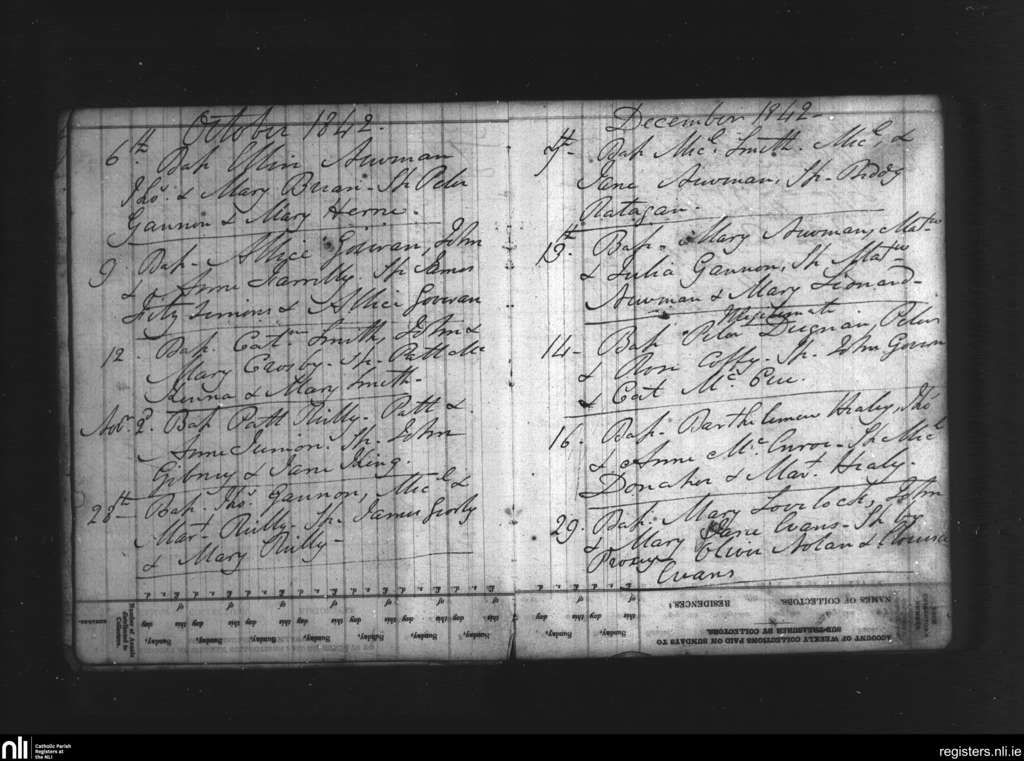 October 1842.
6th Bap Ellin Newman
Tho. & Mary Brian - Sp Peter
Gannon & Mary Herne.
9. Bap - Allice Goveran, John
& Anne Farrilly. Sp James
Fitz Simons & Allice Goveran
12. Bap. Cat. Smith, John &
Mary Crosby - Sp. Patt Mc
Kenna & Mary Smith -
Novr. 2. Bap Patt Rilly - Patt &
Anne Sp. John
Gibney & Jane King.
28th Bap. Tho. Gannon, Micl &
Mart. Rilly - Sp. James
& Mary Rilly -
December 1842 -
Bap Micl. Smith. Micl, &
Jane Newman, Sp. -
Ratagan.
13th. Bap - Mary Newman, Matw
& Julia Gannon, Sp Matw
Newman & Mary Leonard -
Illigitimate
14 - Bap Peter Duignan, Peter
& Rose Coffy - Sp. John
& Cat Mc.
16. Bap. Barthelemew Healy, Tho
& Anne Mc. - Sp Micl
Donaher & Mart. Healy.
29. Bap. Mary Lovelock, John
& Mary Jane Evans - Sp by
Proxy Oliver Nolan & Louisa
Evans
ACCOUNT OF WEEKLY COLLECTIONS PAID ON SUNDAYS TO
SUB-TREASURER BY COLLECTORS.
NAMES OF COLLECTORS.
RESIDENCES:
Sunday, this day of
nli
Catholic Parish
Registers at
the NLI
registers.nli.ie